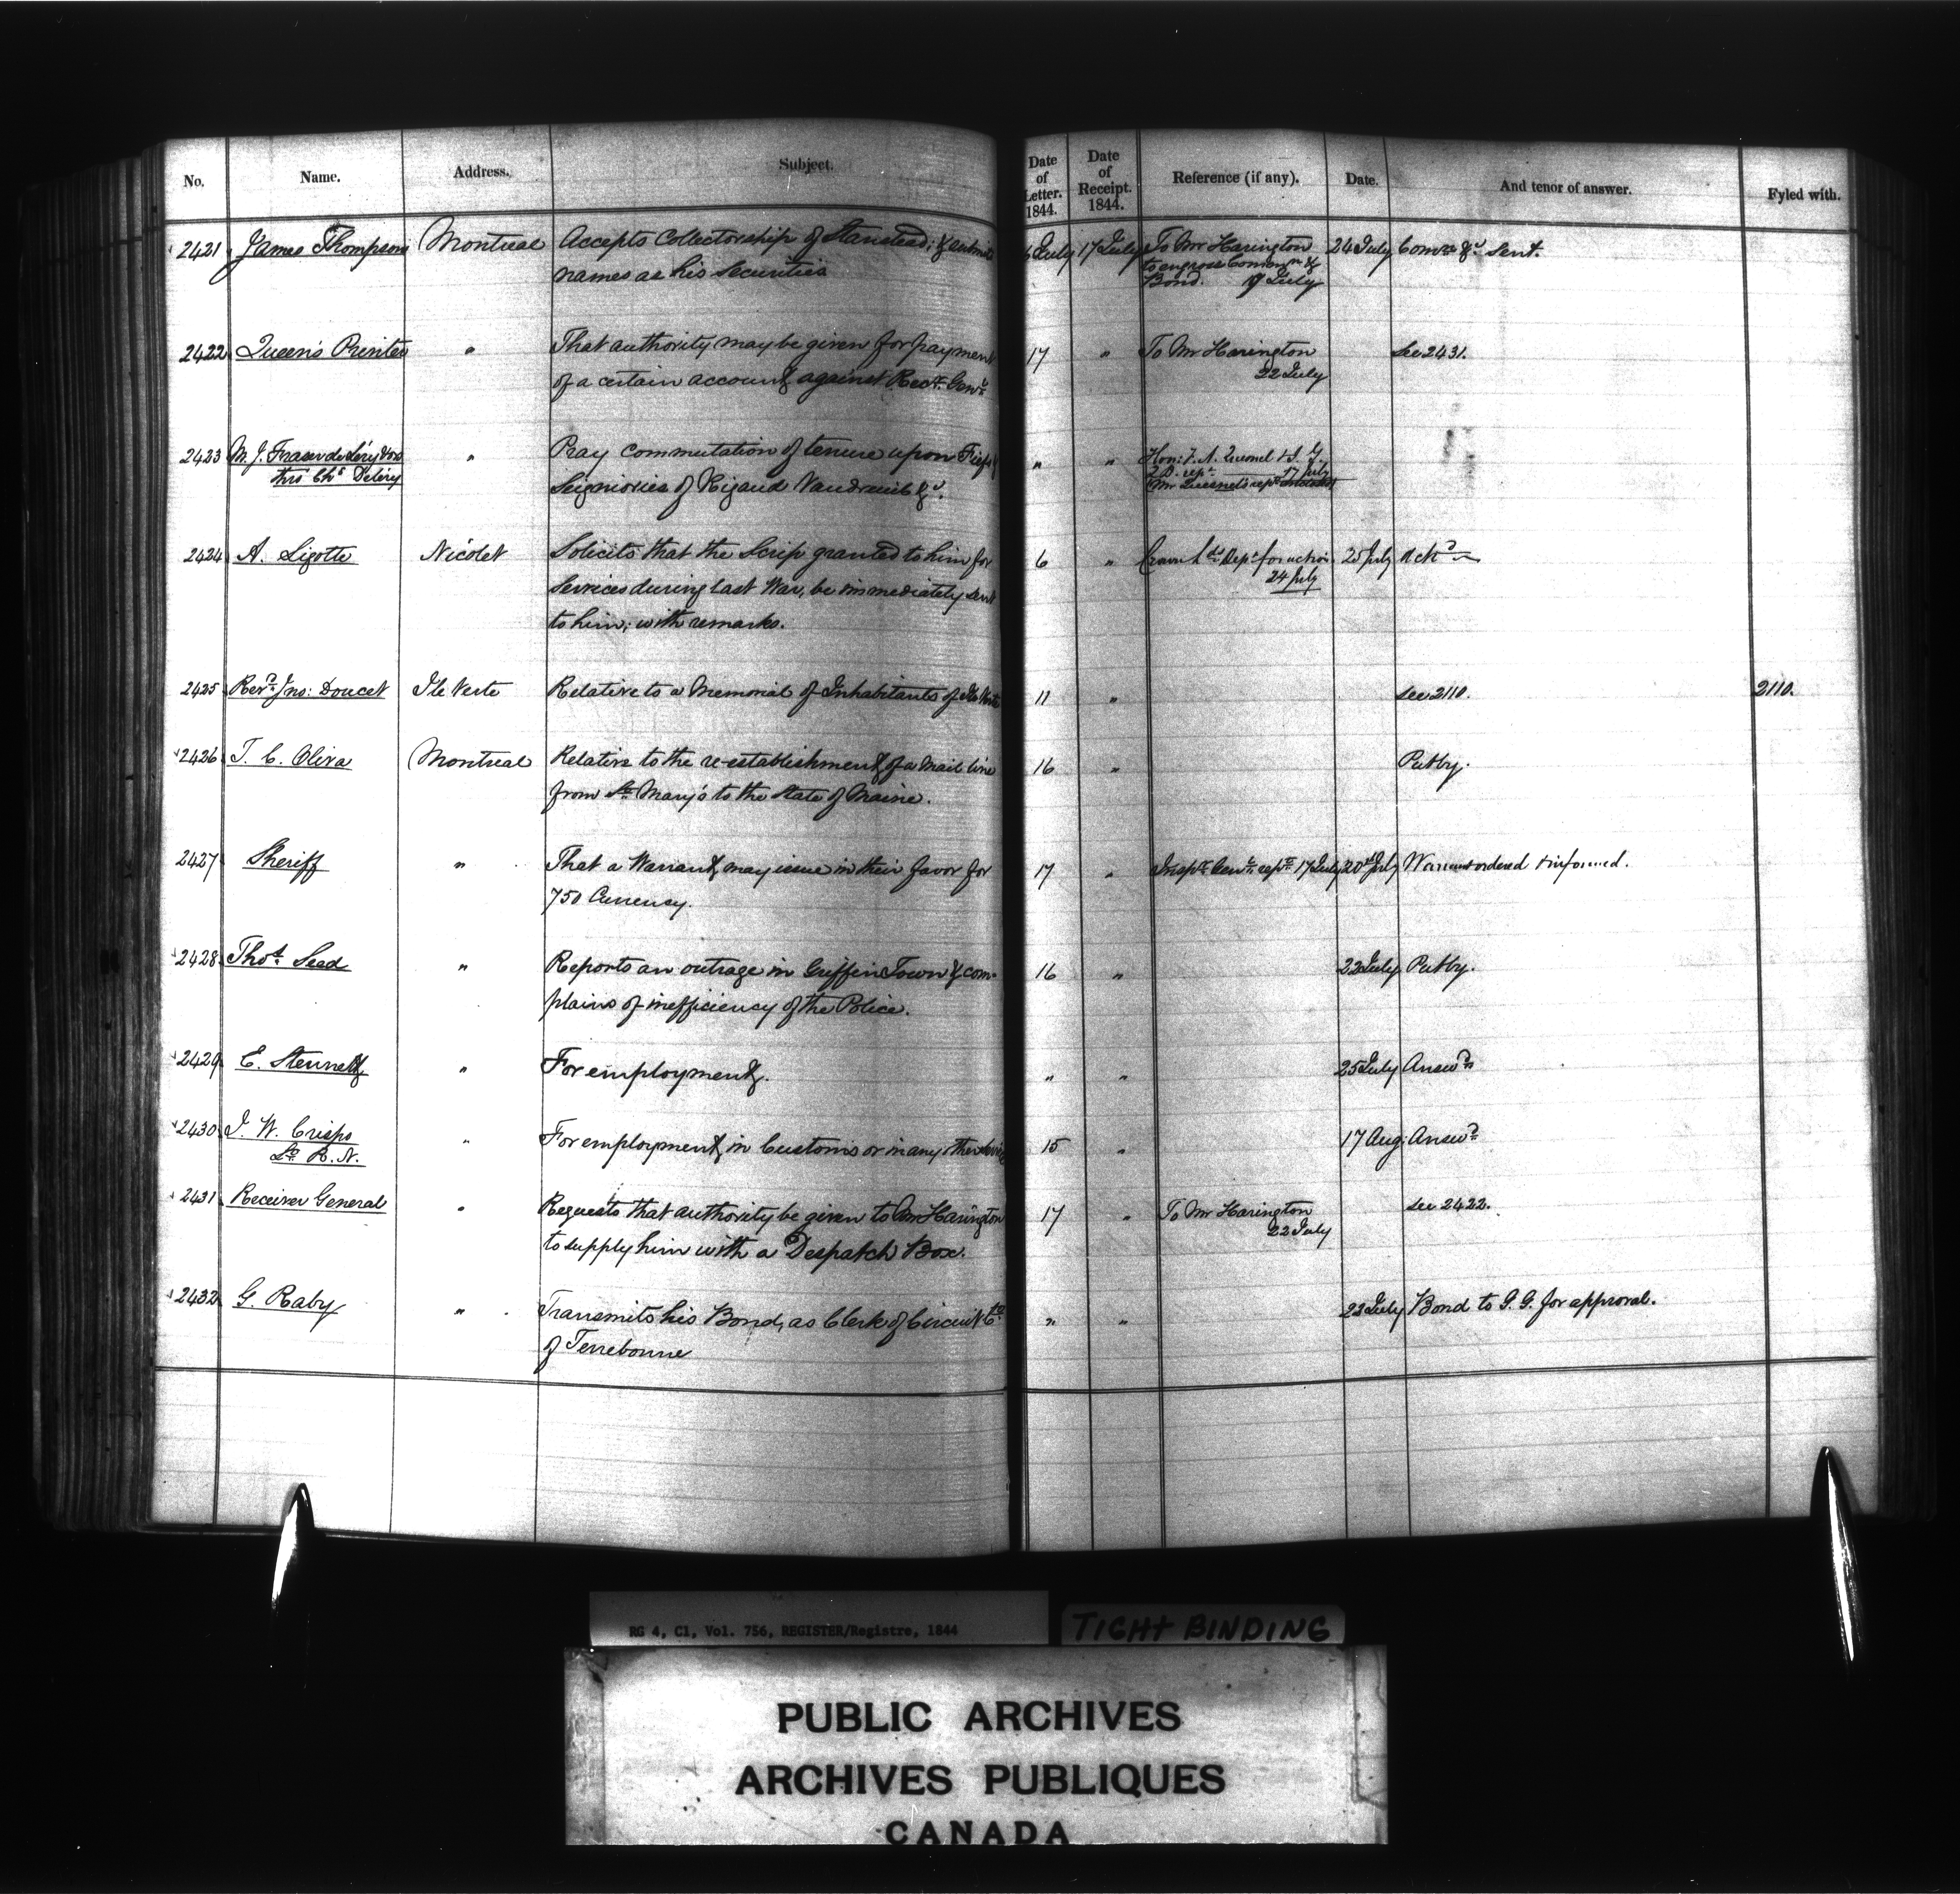 No. Name. Address. Subject. Date of Letter. 1844. Date of Receipt. 1844. Reference (if any). Date. And tenor of answer. Fyled with.
2421 James Thompson Montreal Accepts Collectorship of Stanstead; & submits 6 July 17 July To Mr Harington 24 July Comn &c sent.
names as his securities to engross Comon &
Bond. 17 July
2422 Queen's Printer " That authority may be given for payment 17 " To Mr Harington see 2431.
of a certain account against Recr. Genl 22 July
2423 M. J. Fraser de Léry " Pray commutation of tenure upon Fiefs & " " Hon: F. A. Quesnel & S. G.
thro' Chs Deléry Seigniories of Rigaud Vaudreuil &c. L. D. rept. 17 July
Mr Quesnel's rept
2424 A. Ligotte Nicolet Solicits that the Scrip granted to him for 6 " Crown Lds Dept for action 25 July Ackd
services during last War, be immediately sent 24 July
to him; with remarks.
2425 Revd Jno: Doucet Ile Verte Relative to a Memorial of Inhabitants of Ile Verte 11 " see 2110. 2110.
2426 T. C. Oliva Montreal Relative to the re-establishment of a Mail line 16 " Putby.
from St Mary's to the State of Maine.
2427 Sheriff " That a Warrant may issue in their favor for 17 " Inspr Genl rept 17 July 20 July Warrant ordered & informed.
750 Currency.
2428 Thos. Seed " Reports an outrage in Griffin Town & com- 16 " 22 July Putby.
plains of inefficiency of the Police.
2429 E. Stennett " For employment. " " 25 July Answd
2430 J. W. Crisps " For employment in Customs or in any other 15 " 17 Aug: Answd
Lt R. N.
2431 Receiver General " Requests that authority be given to Mr Harington 17 " To Mr Harington see 2422.
to supply him with a Despatch Box. 22 July
2432 G. Raby " Transmits his Bond, as Clerk of Circuit Ct " " 22 July Bond to G. G. for approval.
of Terrebonne
RG 4, C1, Vol. 756, REGISTER/Registre, 1844
TIGHT BINDING
PUBLIC ARCHIVES
ARCHIVES PUBLIQUES
CANADA